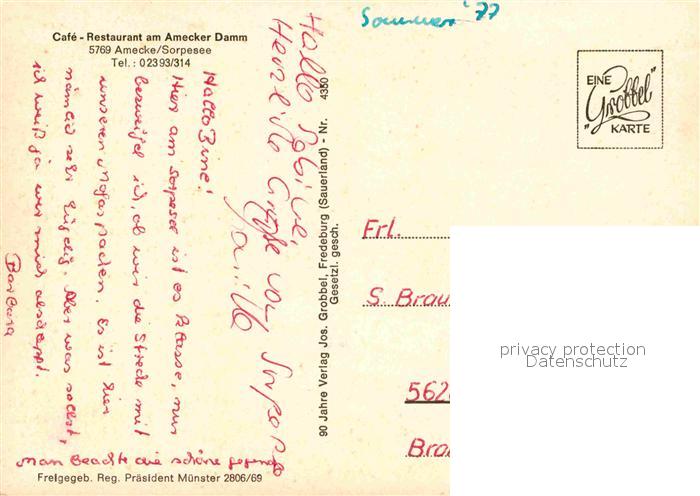 Café - Restaurant am Amecker Damm
5769 Amecke/Sorpesee
Tel.: 02393/314
Hallo Bine!
Hier am Sorpesee ist es Klasse, nur
bezweifel ich, ob wir die Strecke mit
unseren Mofas packen. Es ist hier
nämlich sehr hügelig. Aber was sollst,
ich weiß ja wer mich abschleppt.
Barbara
Man beachte die schöne Gegend
Freigegeb. Reg. Präsident Münster 2806/69
Hallo Sabine,
Herzliche Grüße vom Sorpesee
90 Jahre Verlag Jos. Grobbel, Fredeburg (Sauerland) - Nr. 4350
Gesetzl. gesch.
Sommer '77
EINE
"Grobbel"
KARTE
Frl.
S. Brau
562
Bro
privacy protection
Datenschutz